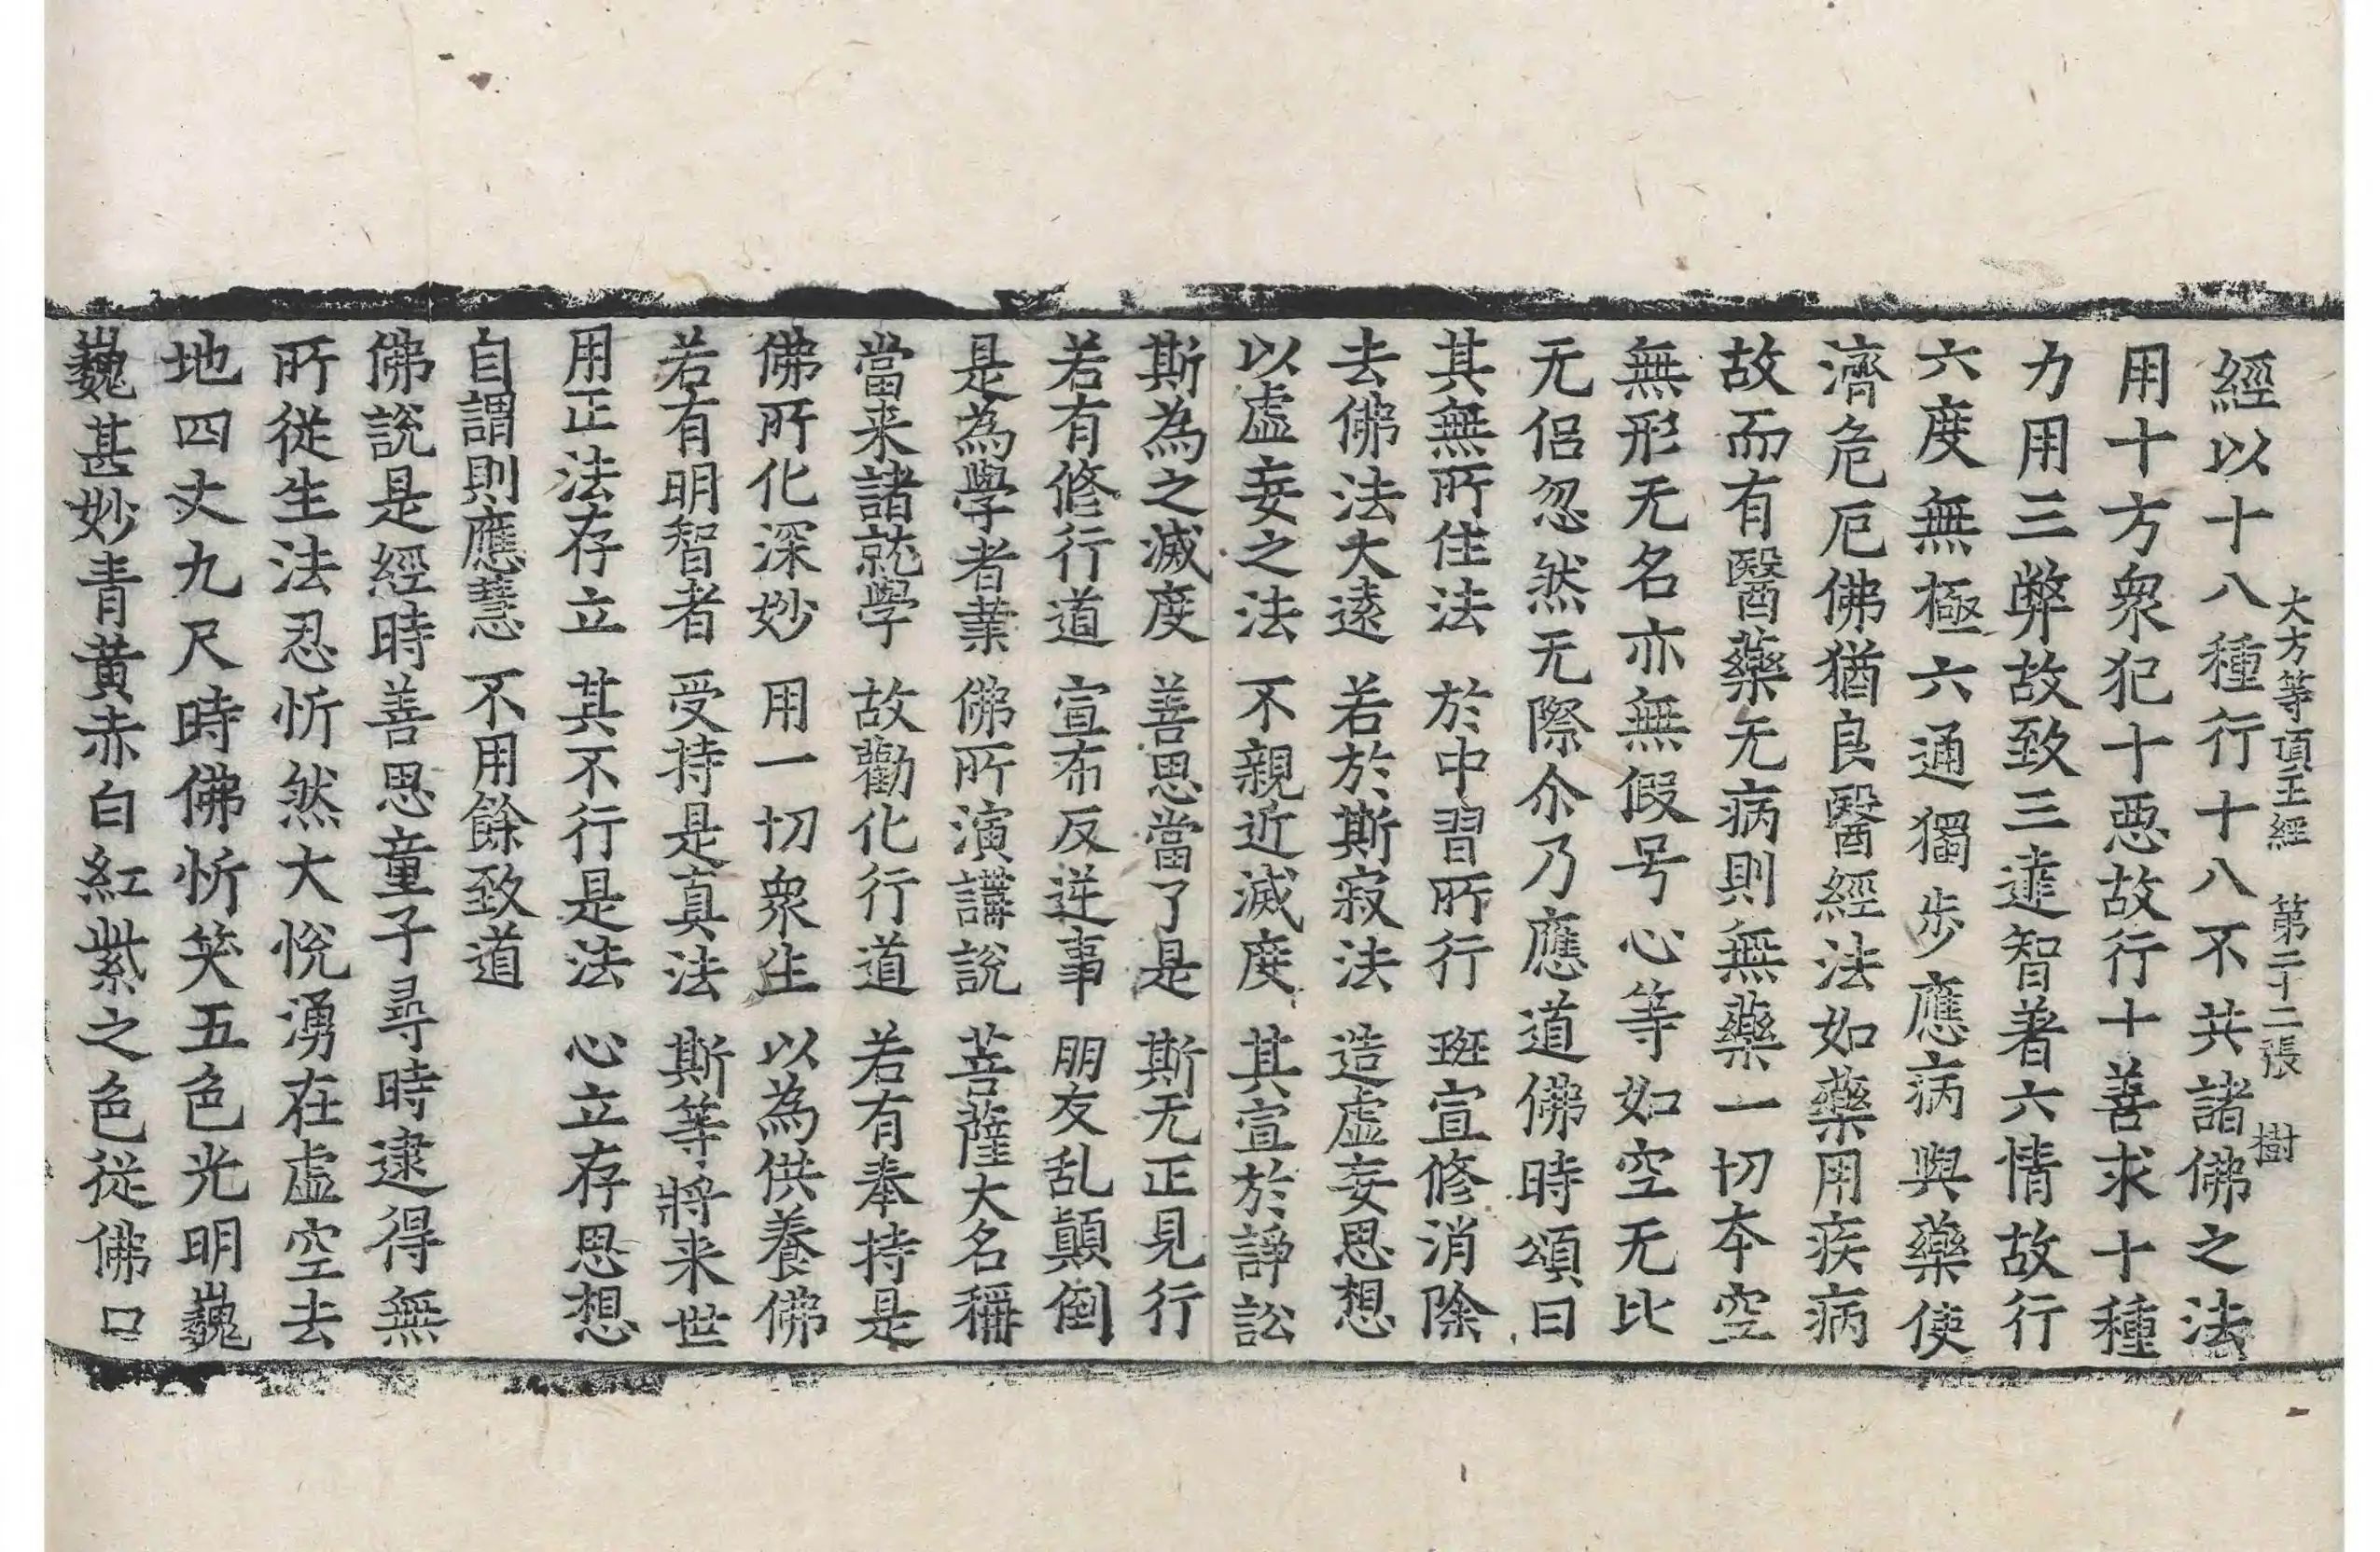 大方等頂王經　第二十二張　樹
經以十八種行十八不共諸佛之法
用十方衆犯十惡故行十善求十種
力用三弊故致三達智著六情故行
六度無極六通獨步應病與藥使
濟危厄佛猶良醫經法如藥用疾病
故而有醫藥无病則無藥一切本空
無形无名亦無假号心等如空无比
无侣忽然无際尒乃應道佛時頌曰
其無所住法　於中習所行　班宣修消除
去佛法大遠　若於斯寂法　造虛妄思想
以虛妄之法　不親近滅度　其宣於諍訟
斯為之滅度　善思當了是　斯无正見行
若有修行道　宣布反逆事　朋友乱顛倒
是為學者業　佛所演講說　菩薩大名稱
當来諸就學　故勸化行道　若有奉持是
佛所化深妙　用一切衆生　以為供養佛
若有明智者　受持是真法　斯等將来世
用正法存立　其不行是法　心立存思想
自謂則應慧　不用餘致道
佛說是經時善思童子尋時逮得無
所從生法忍忻然大悅湧在虛空去
地四丈九尺時佛忻笑五色光明巍
巍甚妙青黃赤白紅紫之色從佛口